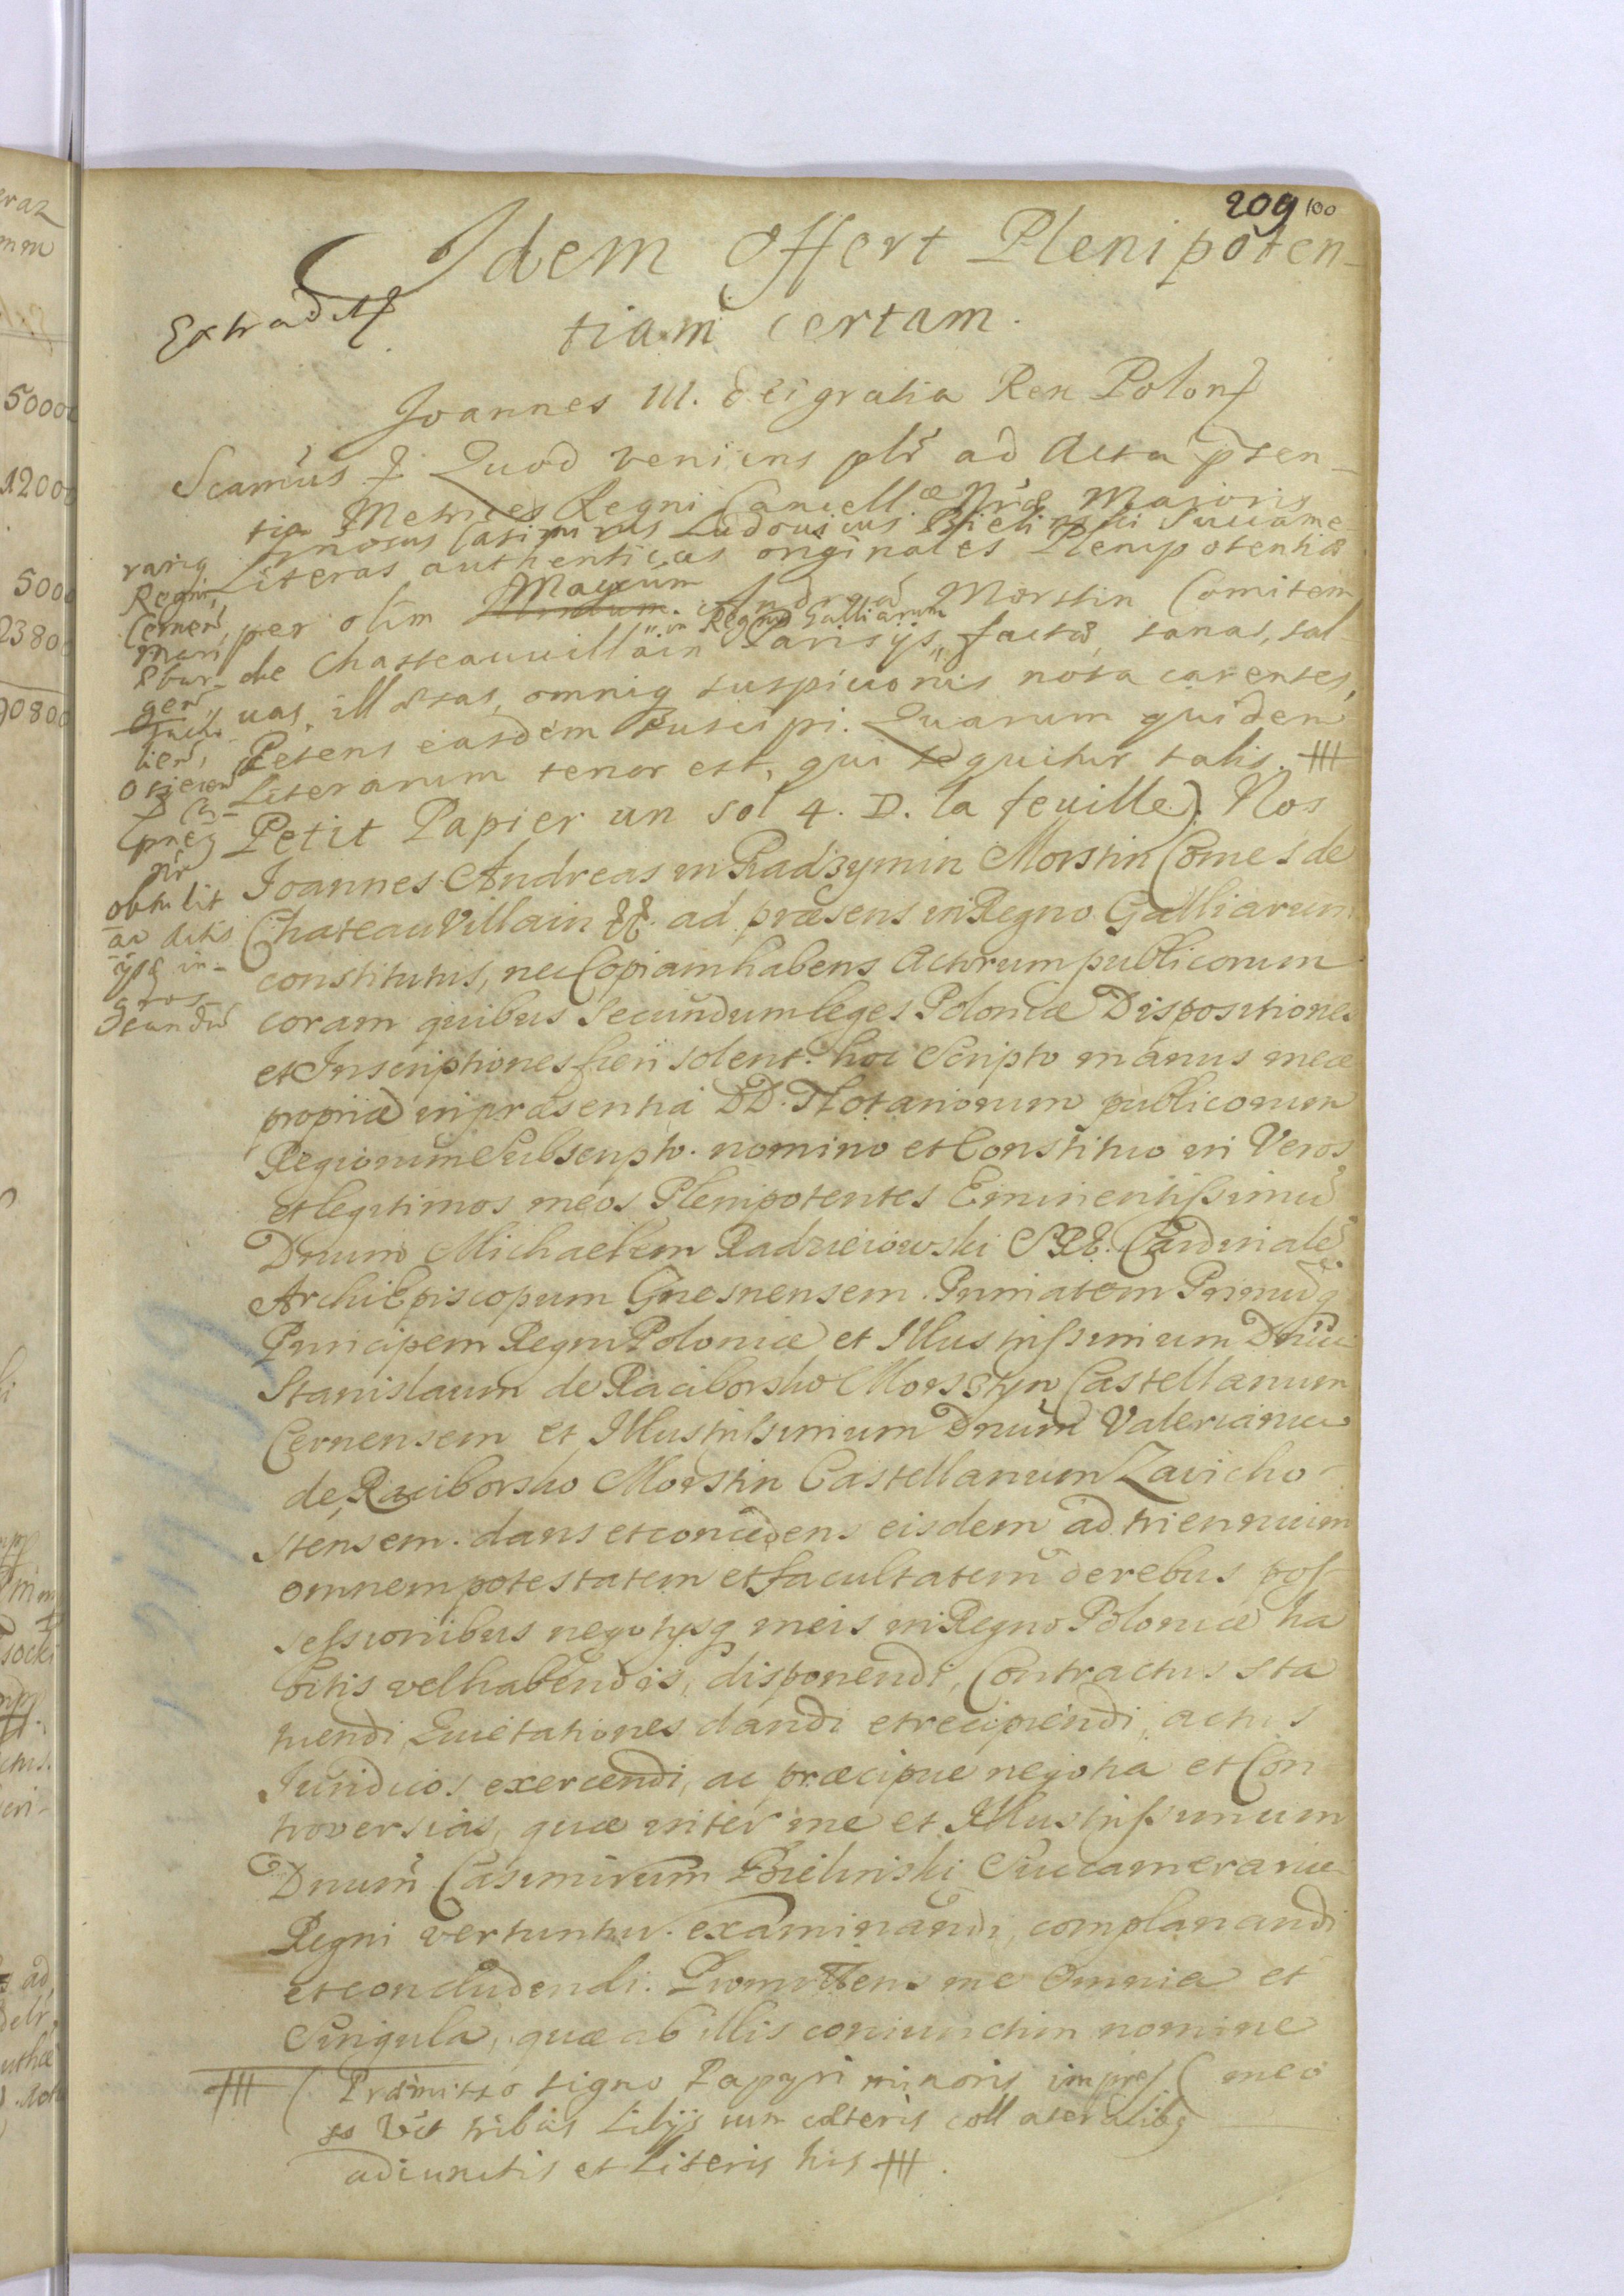 209 100
Idem Offert Plenipoten-
tiam certam.
Extradit
Joannes III. Dei gratia Rex Polon
Scamus Quod veniens plr ad Acta pren-
tia Metrices Regni Cancell. Nrae Maioris
Gnosus Casimirus Ludovicus Bielinski Succame-
rariq
Regni,
Cernen,
mari
Ebur-
gen
lien,
Osiecen
Cpneg
nr
obtulit
ac ditis
ysq in-
gros
Literas authenticas originales Plenipotentiae
per olim Magcum Andrea Morstin Comitem
de Chasteauvillain Parisijs in Regno Galliarum factas, sanas, sal-
uas, illaesas, omniq suspicionis nota carentes,
Petens easdem suscipi. Quarum quidem
Literarum tenor est, qui sequitur talis.
Petit Papier un sol 4. D. la feuille) Nos
Joannes Andreas in Radzymin Morstin Comes de
Chateau Villain &&. ad praesens in Regno Galliarum
constitutus, nec Copiam habens Actorum publicorum
coram quibus Secundum leges Poloniae Dispositiones
et Inscriptiones fieri solent. hoc Scripto manus meae
propriae in praesentia DD. Notariorum publicorum
Regiorum Subscripto. nomino et Constituo in Veros
et legitimos meos Plenipotentes Eminentissimu
Dnum Michaelem Radzieiowski S.R.E. Cardinale
Archi Episcopum Gnesnensem. Primatem Primuq
Principem Regni Poloniae et Illustrissimum Dnu
Stanislaum de Raciborsko Morsztyn Castellanum
Cernensem et Illustrissimum Dnum Valerianu
de Raciborsko Morstin Castellanum Zavicho-
stensem. dans et concedens eisdem ad triennium
omnem potestatem et facultatem de rebus pos-
sessionibus negotijsq meis in Regno Poloniae ha
bitis vel habendis, disponendi, Contractus sta
tuendi Quietationes dandi et recipiendi, actus
Juridicos exercendi, ac praecipue negotia et Con
troversias, quae inter me et Illustrissimum
Dnum Casimirum Bielinski Succamerariu
Regni vertuntur. examinandi, complanandi
et concludendi. Promittens me Omnia et
Singula, quae ab illis coniunctim nomine
meo
(Praemisso signo Papyri minoris impres
so vict tribus Lilijs cum caeteris collateralibq
adiunctis et Literis his